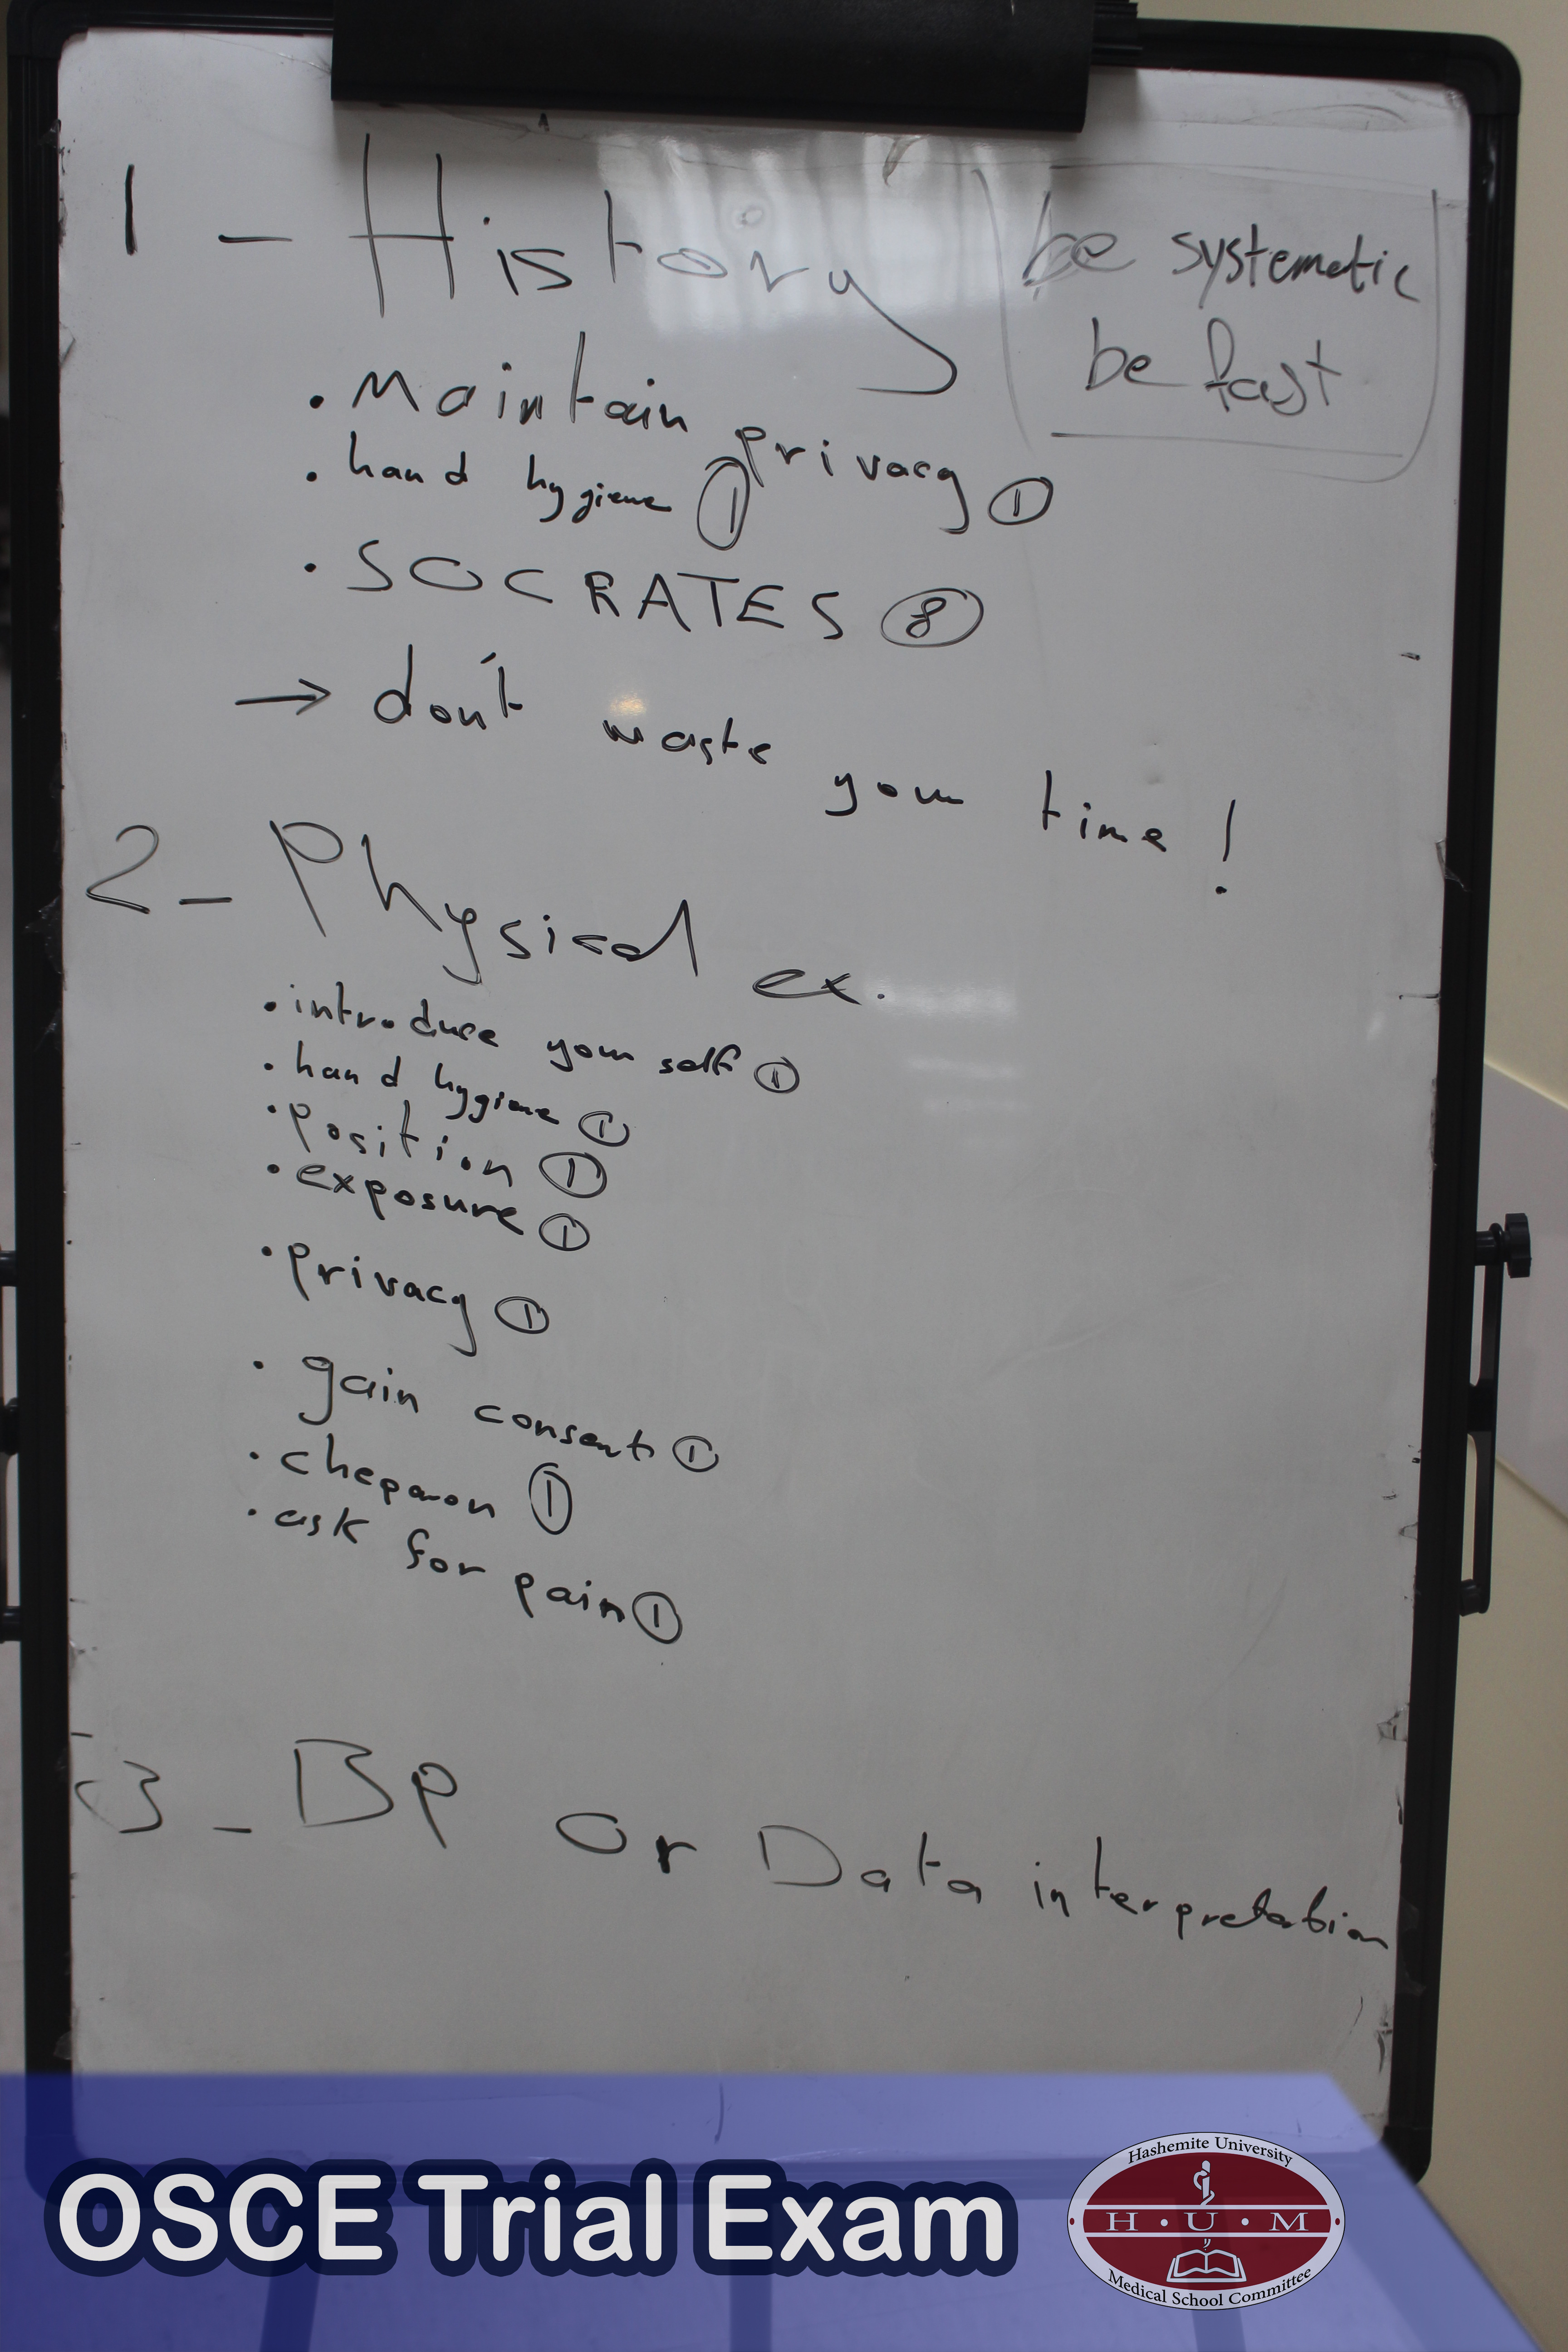 1 - History
be systematic
be fast
. Maintain privacy ①
. hand hygiene ①
. SOCRATES ⑧
→ don't waste your time !
2 - Physical ex.
. introduce your self ①
. hand hygiene ①
. position ①
. exposure ①
. privacy ①
. gain consent ①
. cheparon ①
. ask for pain ①
3 - BP or Data interpretation
OSCE Trial Exam
Hashemite University
H • U • M
Medical School Committee